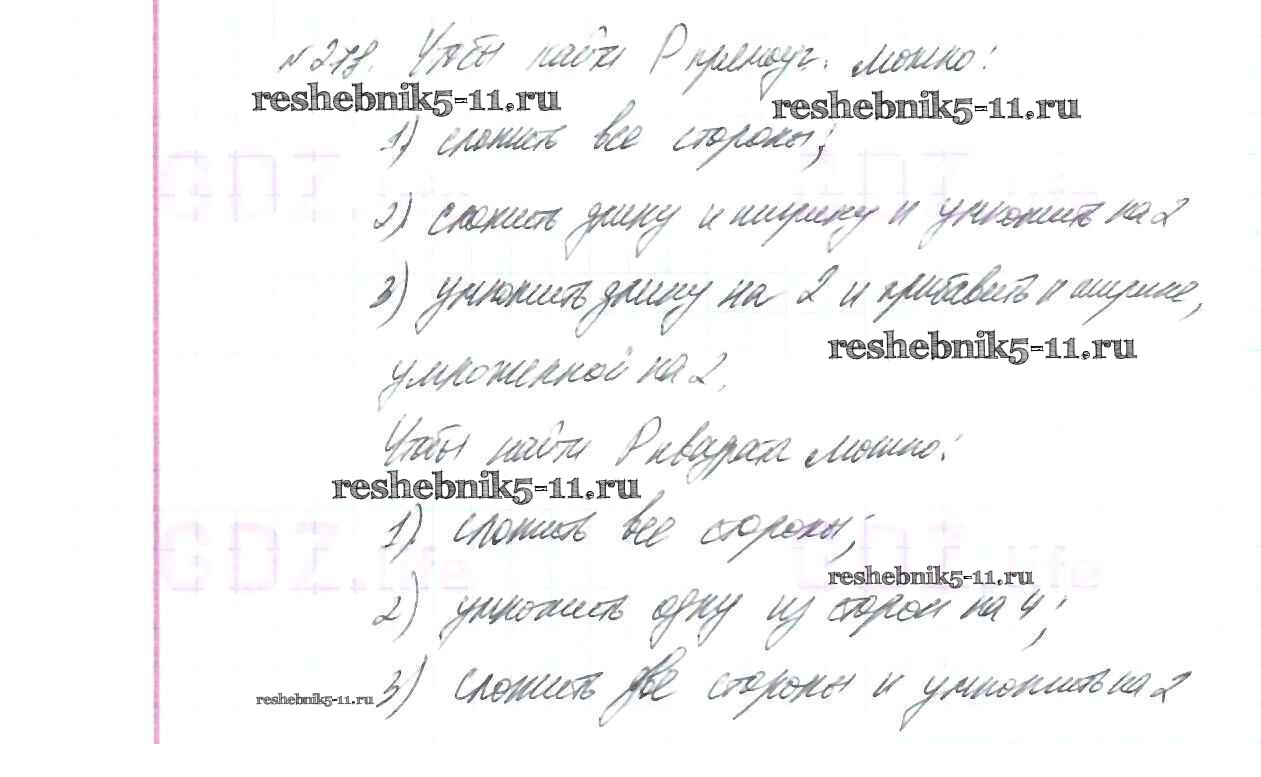 № 278. Чтобы найти P прямоуг. можно:
reshebnik5-11.ru reshebnik5-11.ru
1) сложить все стороны;
GDZ.life GDZ.life
2) сложить длину и ширину и умножить на 2
3) умножить длину на 2 и прибавить к ширине,
reshebnik5-11.ru
умноженной на 2.
Чтобы найти P квадрата можно:
reshebnik5-11.ru
1) сложить все стороны;
GDZ.life GDZ.life
reshebnik5-11.ru
2) умножить одну из сторон на 4;
reshebnik5-11.ru
3) сложить две стороны и умножить на 2